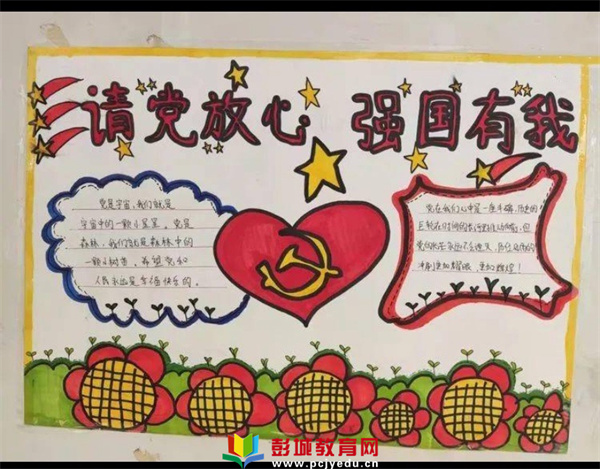 请党放心 强国有我
党是宇宙,我们就是
宇宙中的一颗小星星。党是
森林,我们就是森林中的
一颗小树苗。希望党和
人民永远是幸福快乐的。
党在我们心中是一座丰碑,历史的
巨轮在时间的长河里
冲刷更加耀眼,更加辉煌!
彭城教育网
www.pcjyedu.cn